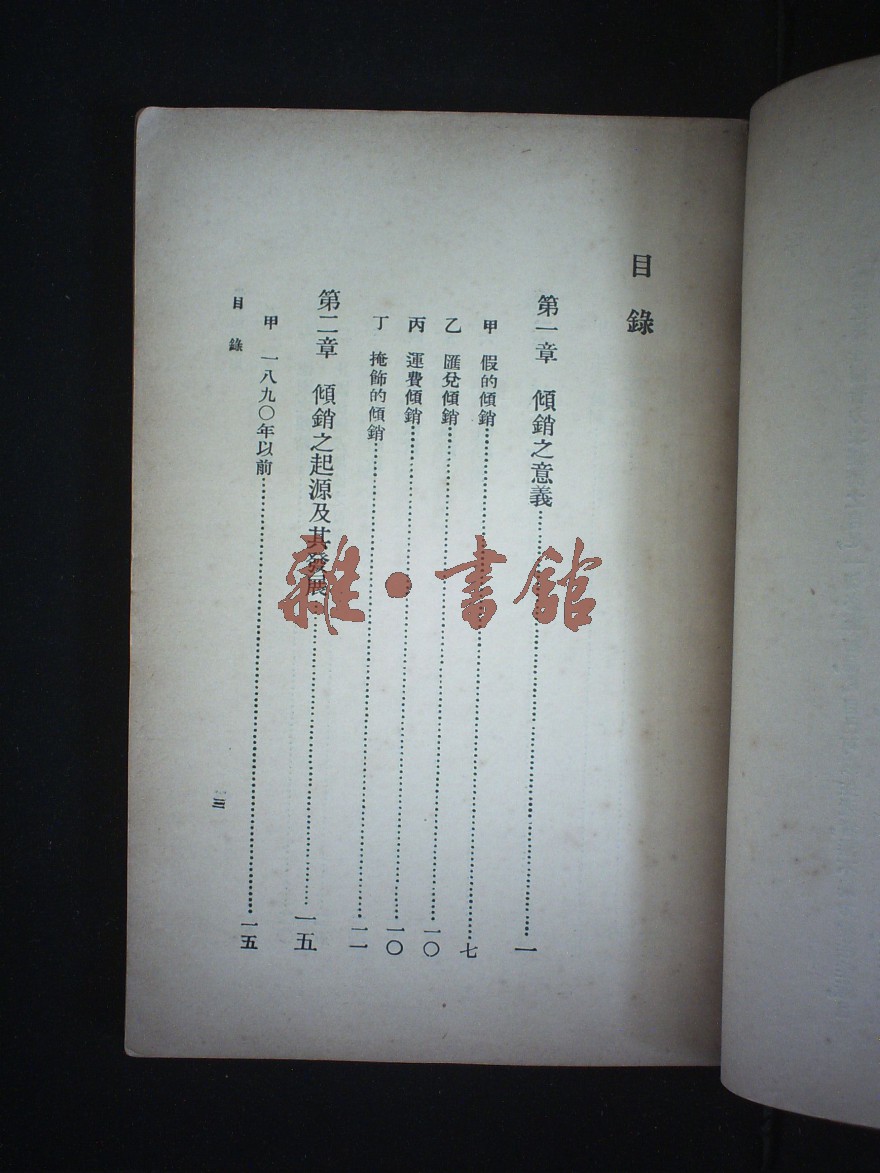 目錄
第一章 傾銷之意義……一
甲 假的傾銷……七
乙 匯兌傾銷……一〇
丙 運費傾銷……一〇
丁 掩飾的傾銷……一一
第二章 傾銷之起源及其發展……一五
甲 一八九〇年以前……一五
目錄
三
雜·書館